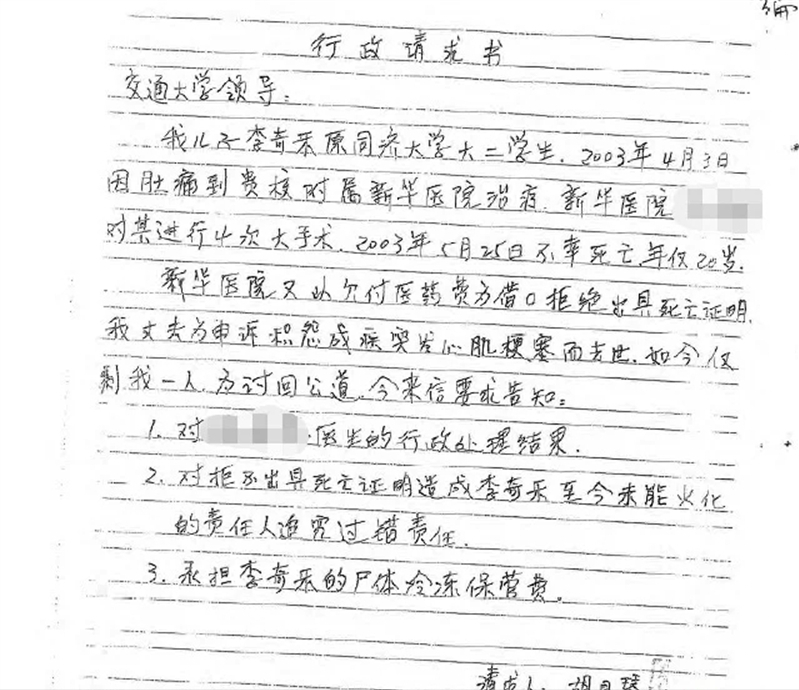 编
行政请求书
交通大学领导:
我儿子李奇乐原同济大学大二学生. 2003年4月3日
因肚痛到贵校附属新华医院治疗. 新华医院
对其进行4次大手术. 2003年5月25日不幸死亡.年仅20岁.
新华医院又以欠付医药费为借口拒绝出具死亡证明.
我丈夫为申诉积怨成疾突发心肌梗塞而去世. 如今仅
剩我一人. 为讨回公道. 今来信要求告知:
1. 对 医生的行政处理结果.
2. 对拒不出具死亡证明造成李奇乐至今未能火化
的责任人追究过错责任.
3. 承担李奇乐的尸体冷冻保管费.
请求人: 胡月琴